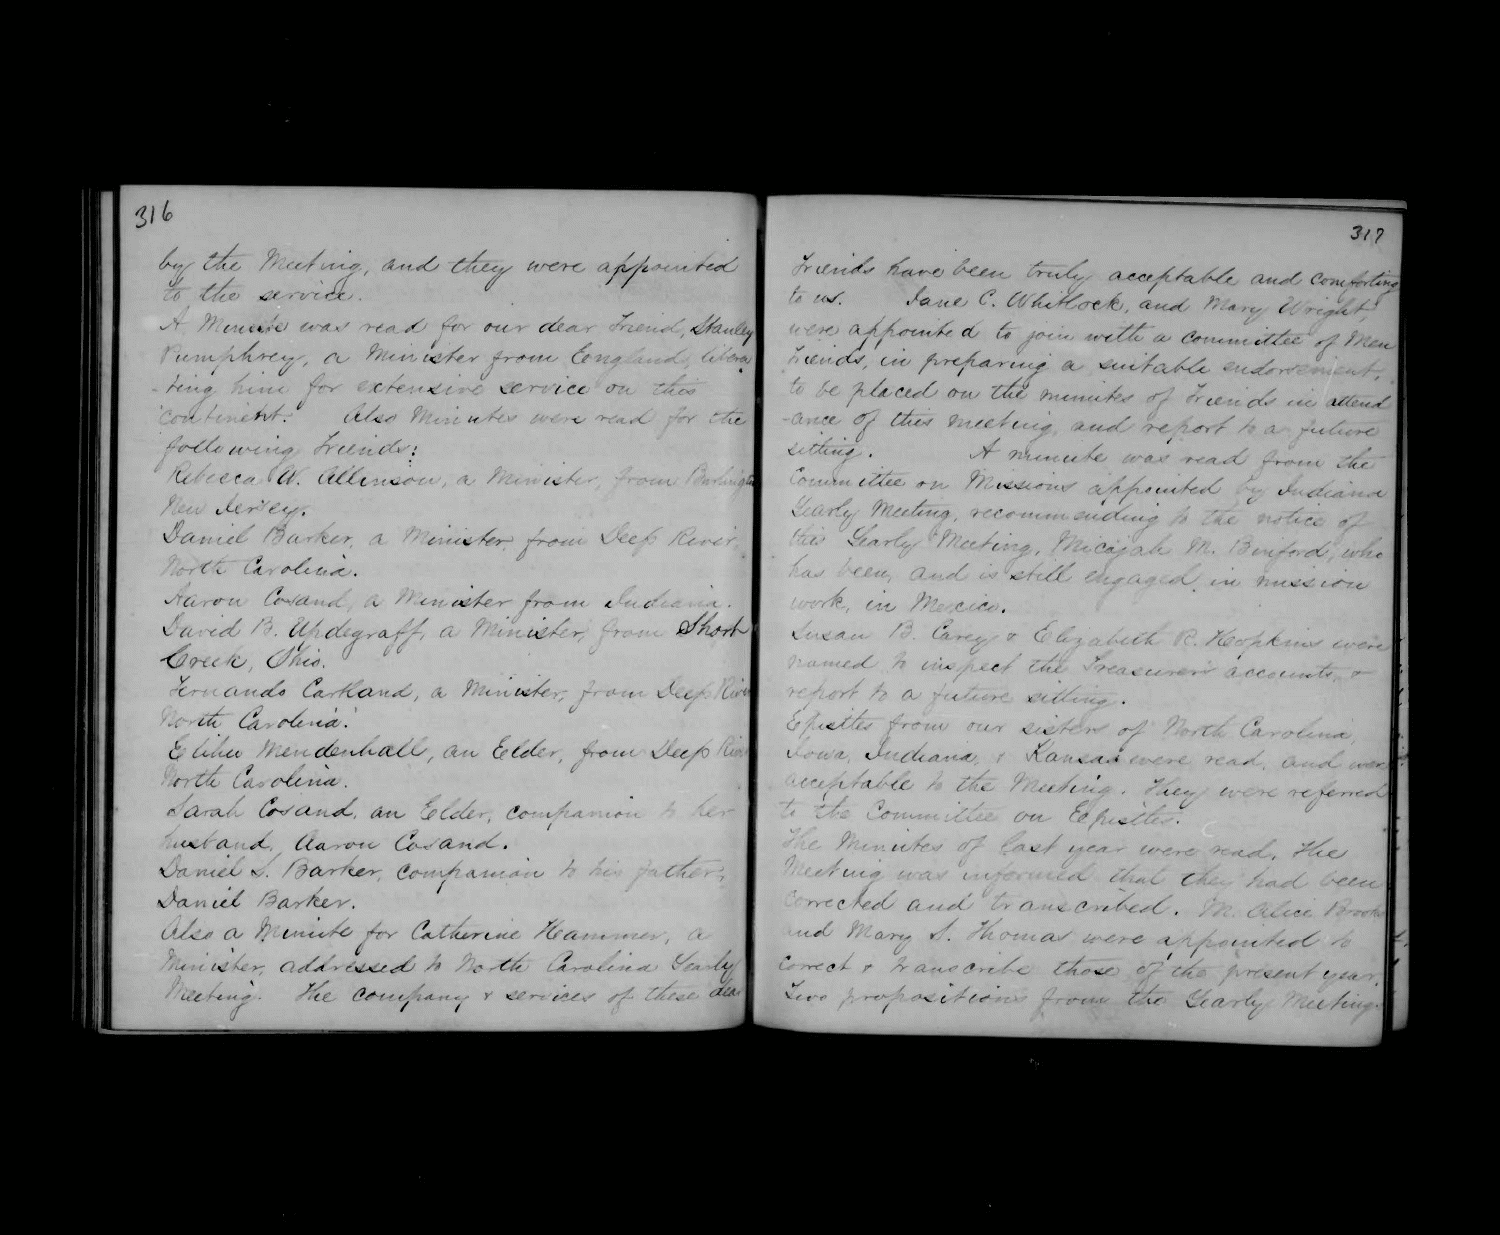 316
by the Meeting, and they were appointed
to the service.
A Minute was read for our dear Friend, Stanley
Pumphrey, a Minister from England, libera
-ting him for extensive service on this
continent. Also Minutes were read for the
following Friends:
Rebecca W. Allinson, a Minister, from Burlington
New Jersey.
Daniel Barker, a Minister, from Deep River,
North Carolina.
Aaron Cosand, a Minister from Indiana.
David B. Updegraff, a Minister, from Short
Creek, Ohio.
Fernando Cartland, a Minister, from Deep River
North Carolina.
Elihu Mendenhall, an Elder, from Deep River
North Carolina.
Sarah Cosand, an Elder, companion to her
husband, Aaron Cosand.
Daniel S. Barker, companion to his father,
Daniel Barker.
Also a Minute for Catherine Hammer, a
Minister, addressed to North Carolina Yearly
Meeting. The company & services of these dear
317
Friends have been truly acceptable and comforting
to us. Jane C. Whitlock, and Mary Wright,
were appointed to join with a committee of Men
Friends, in preparing a suitable endorsement,
to be placed on the minutes of Friends in attend
-ance of this meeting, and report to a future
sitting. A minute was read from the
Committee on Missions appointed by Indiana
Yearly Meeting, recommending to the notice of
this Yearly Meeting, Micajah M. Binford, who
has been, and is still engaged in mission
work, in Mexico.
Susan B. Carey & Elizabeth R. Hopkins were
named to inspect the Treasurer's accounts, &
report to a future sitting.
Epistles from our sisters of North Carolina,
Iowa, Indiana, & Kansas were read, and were
acceptable to the Meeting. They were referred
to the Committee on Epistles.
The Minutes of last year were read. The
Meeting was informed that they had been
corrected and transcribed. M. Alice Brooks
and Mary S. Thomas were appointed to
correct & transcribe those of the present year.
Two propositions from the Yearly Meeting